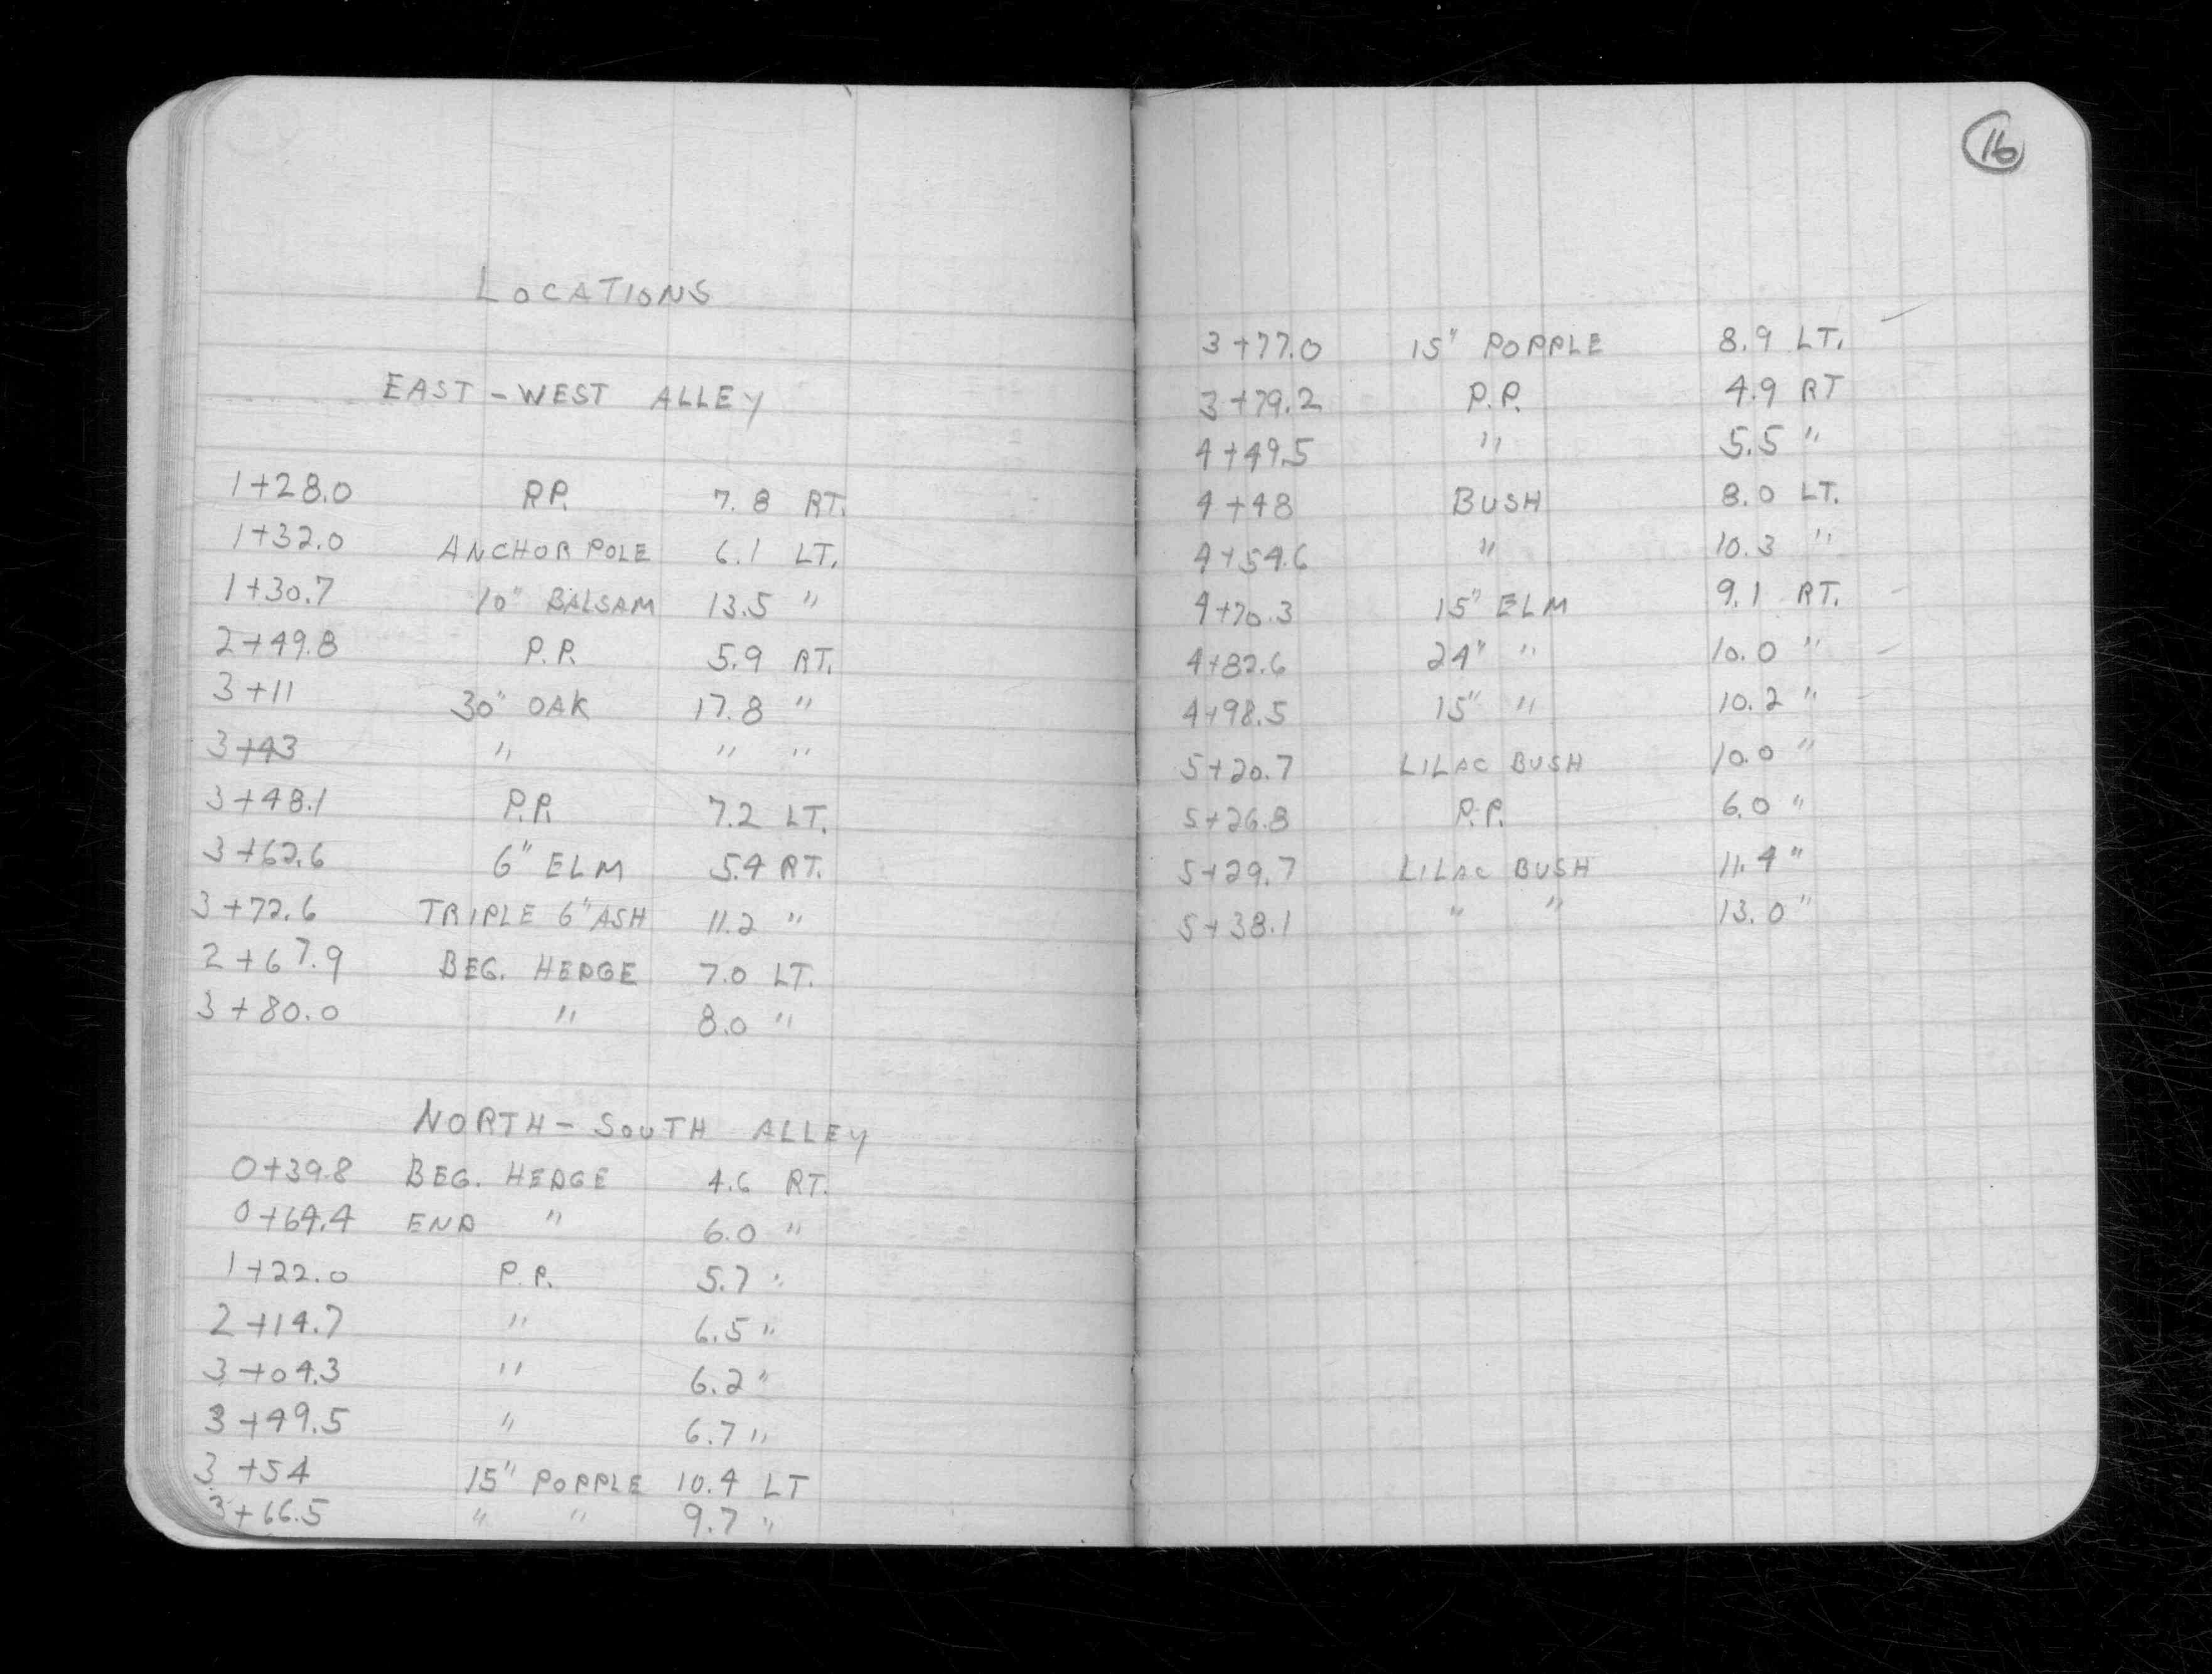 LOCATIONS
EAST-WEST ALLEY
1+28.0 P.P. 7.8 RT.
1+32.0 ANCHOR POLE 6.1 LT.
1+30.7 10" BALSAM 13.5 "
2+49.8 P.P. 5.9 RT.
3+11 30" OAK 17.8 "
3+43 " " "
3+48.1 P.P. 7.2 LT.
3+62.6 6" ELM 5.4 RT.
3+72.6 TRIPLE 6" ASH 11.2 "
2+67.9 BEG. HEDGE 7.0 LT.
3+80.0 " 8.0 "
NORTH-SOUTH ALLEY
0+39.8 BEG. HEDGE 4.6 RT.
0+64.4 END " 6.0 "
1+22.0 P.P. 5.7 "
2+14.7 " 6.5 "
3+04.3 " 6.2 "
3+49.5 " 6.7 "
3+54 15" POPPLE 10.4 LT
3+66.5 " " 9.7 "
16
3+77.0 15" POPPLE 8.9 LT.
3+79.2 P.P. 4.9 RT
4+49.5 " 5.5 "
4+48 BUSH 8.0 LT.
4+54.6 " 10.3 "
4+70.3 15" ELM 9.1 RT.
4+82.6 24" " 10.0 "
4+98.5 15" " 10.2 "
5+20.7 LILAC BUSH 10.0 "
5+26.8 P.P. 6.0 "
5+29.7 LILAC BUSH 11.4 "
5+38.1 " " 13.0 "